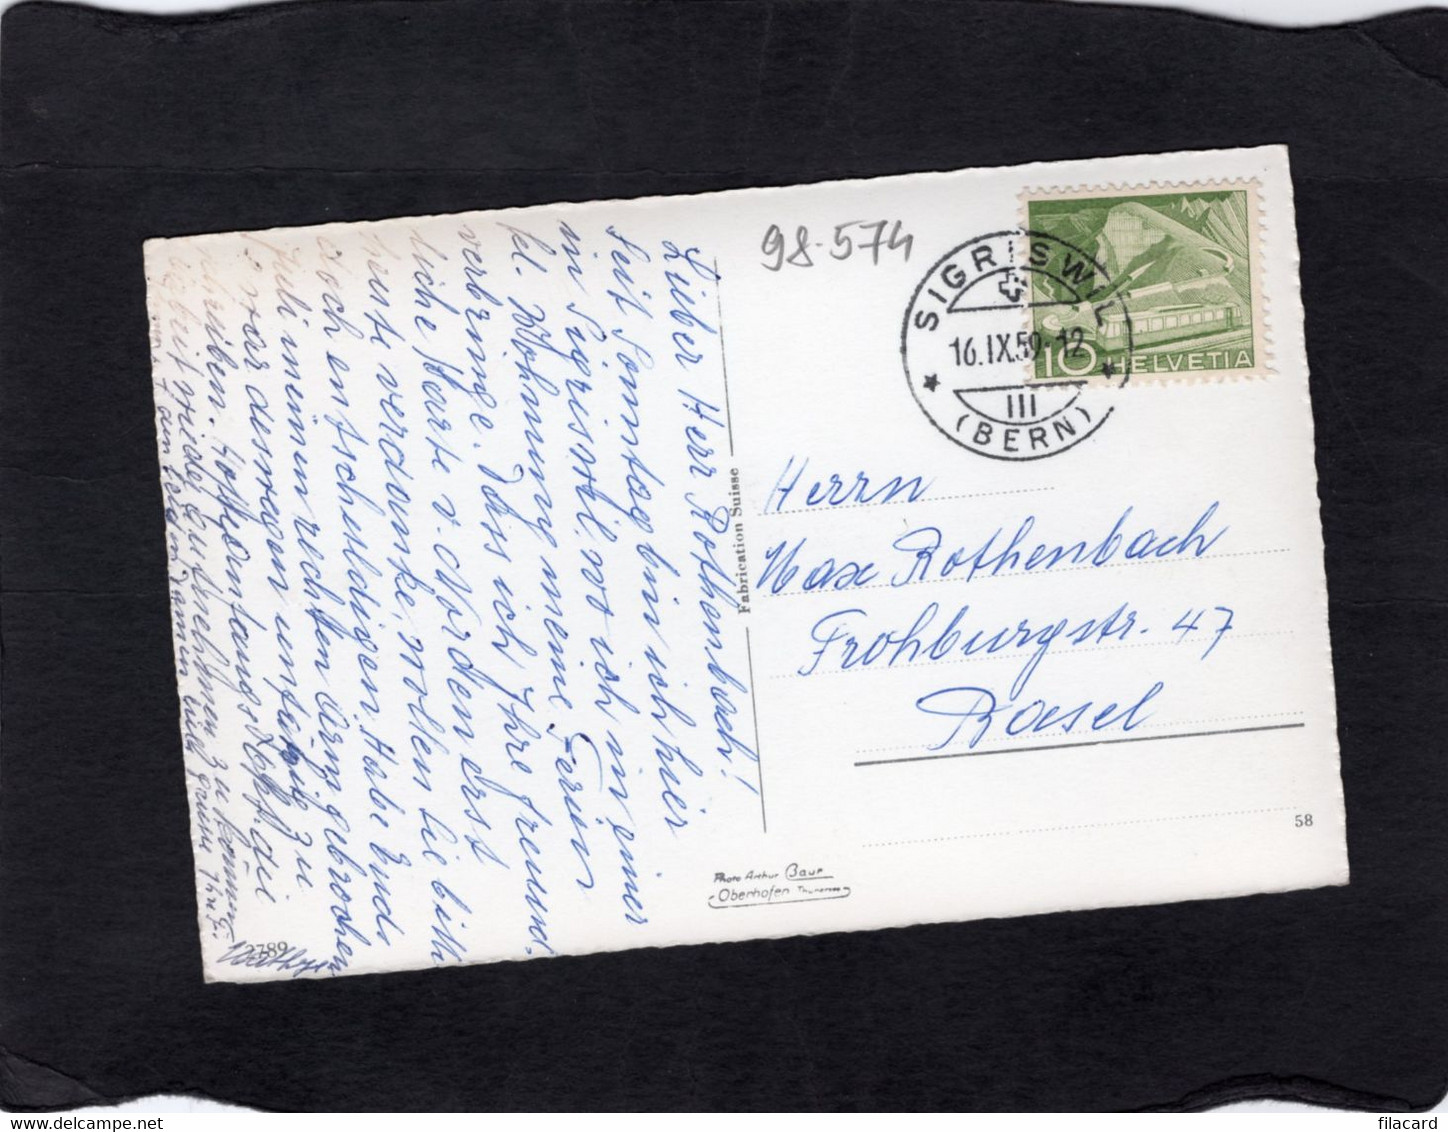 98-574
SIGRISWIL
16.IX.59-12
III
(BERN)
10 HELVETIA
Herrn
Max Rothenbach
Frohburgstr. 47
Basel
58
Fabrication Suisse
Photo Arthur Baur
Oberhofen Thunersee
2789
Lieber Herr Rothenbach!
Seit Sonntag bin ich hier
in Sigriswil, wo ich in einer
kl. Wohnung meine Ferien
verbringe. Dass ich Ihre freund-
liche Karte v. Norden erst
heute verdanke, wollen Sie bitte
doch entschuldigen. Habe Ends
Juli meinen rechten Arm gebrochen
u. war deswegen unfähig zu
schreiben. Hoffentlich